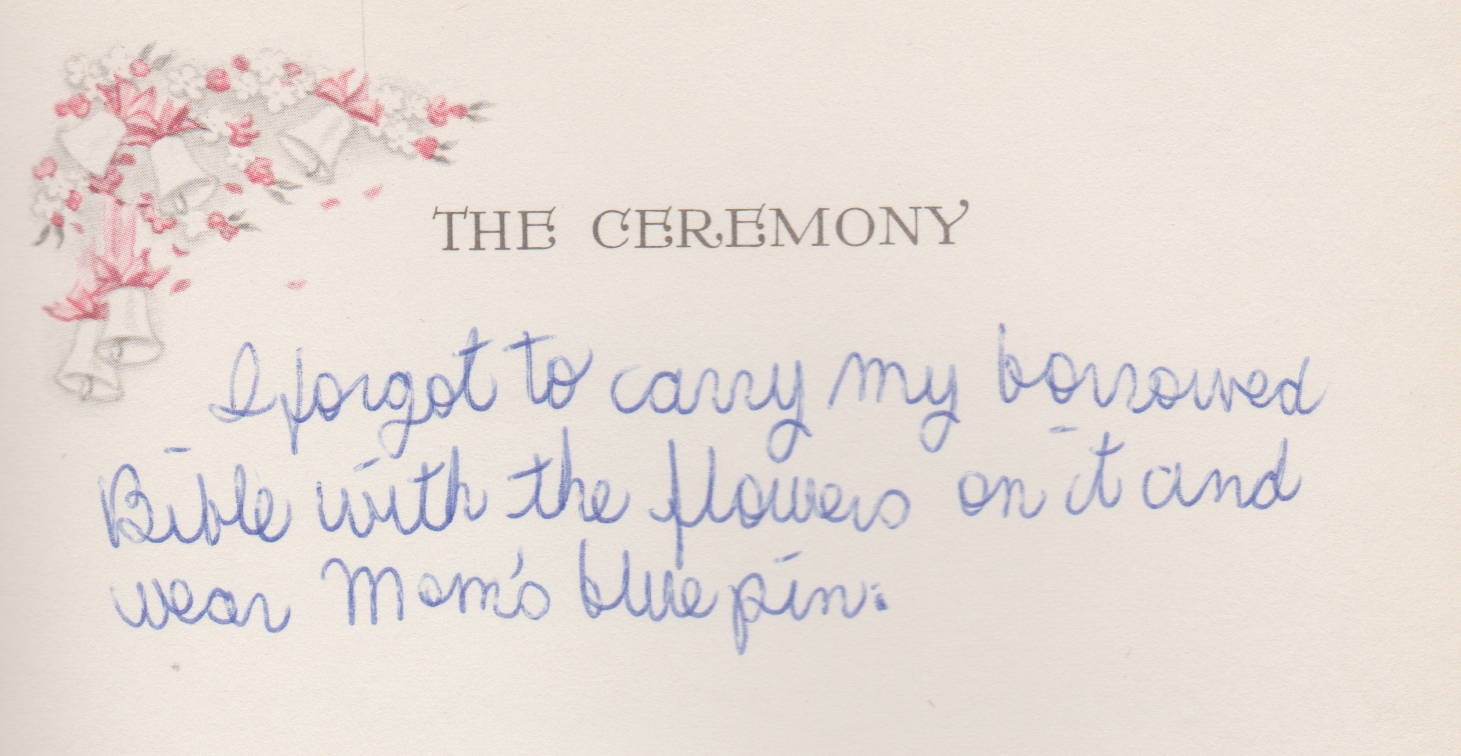 THE CEREMONY
I forgot to carry my borrowed
Bible with the flowers on it and
wear Mom's blue pin.